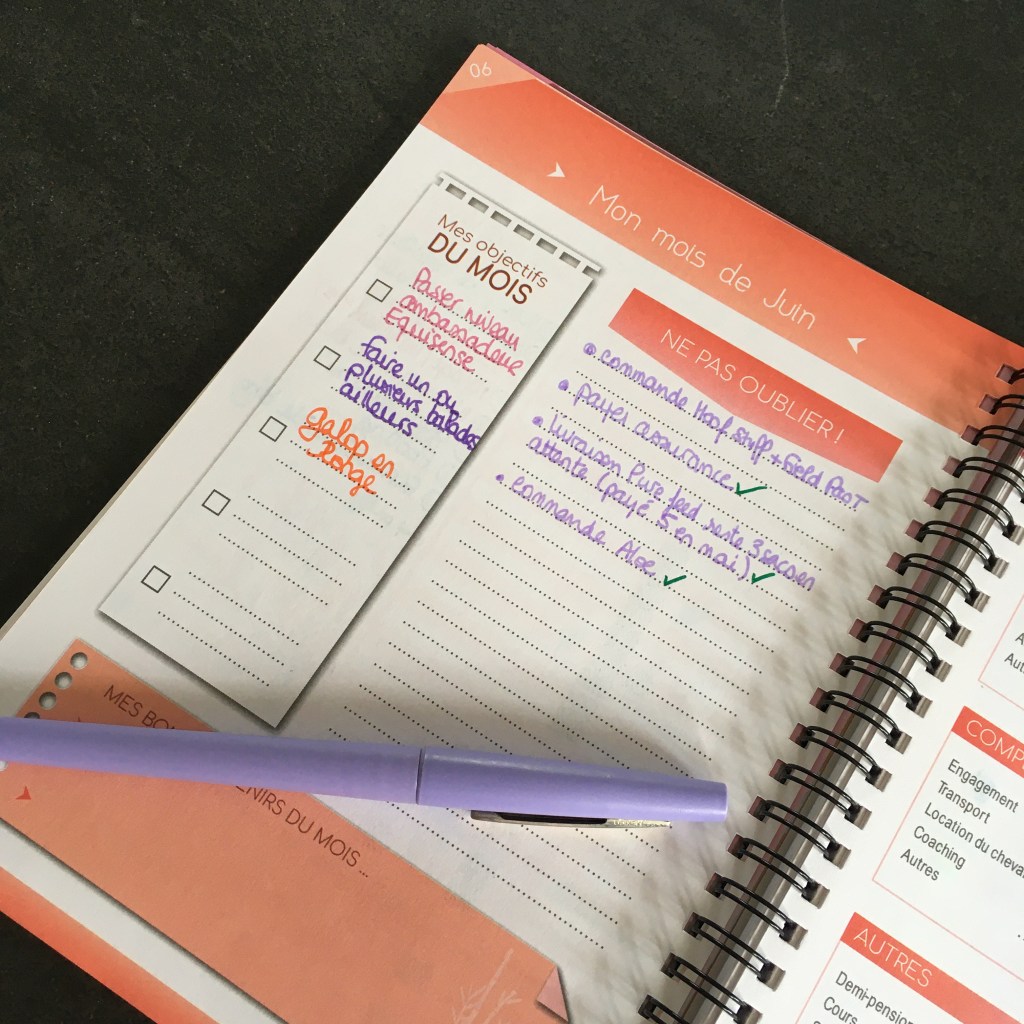 06
Mon mois de Juin
Mes objectifs
DU MOIS
Passer niveau
ambassadeur
Equisense
faire un
plusieurs balades
ailleurs
galop en
longe
NE PAS OUBLIER !
• commande Hoof Stuff + Gold Pact
• payer assurance
• livraison Pure feed reste 3 sacs en
attente (payé 5 en mai)
• commande Aloe
MES BON
ENIRS DU MOIS ...
COMP
Engagement
Transport
Location du cheva
Coaching
Autres
AUTRES
Demi-pension
Cours